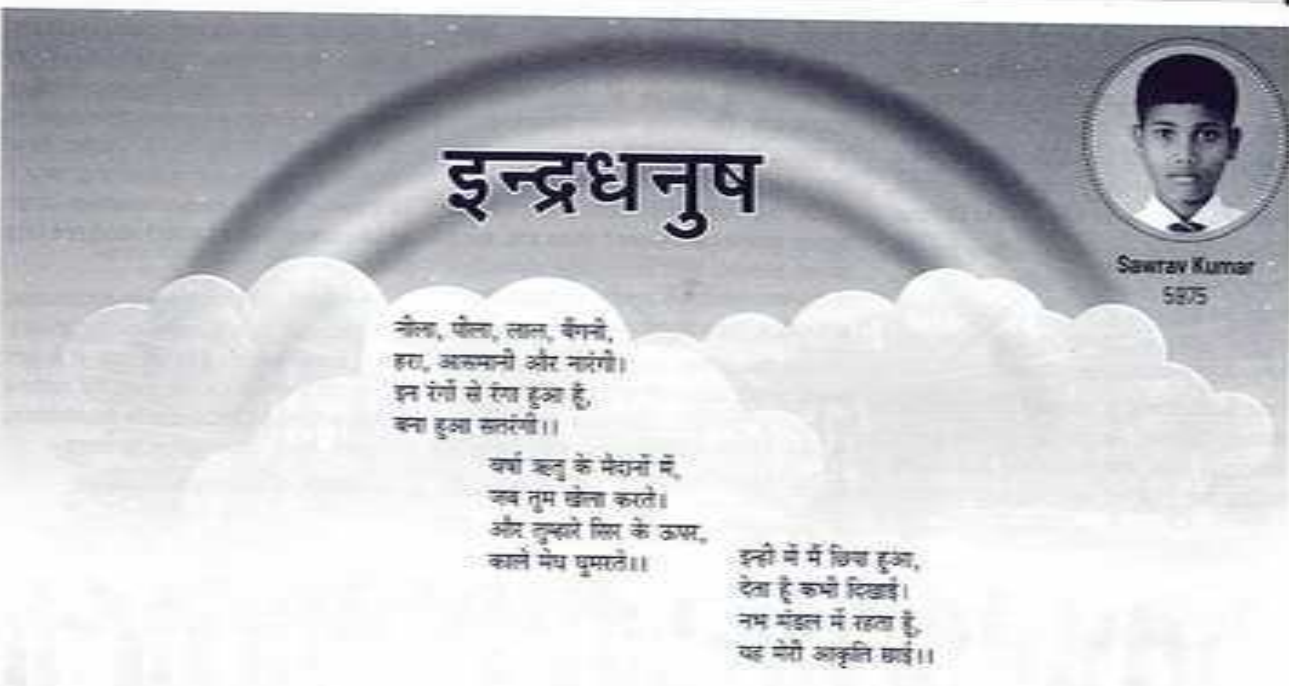 इन्द्रधनुष
Sawrav Kumar
5975
नीला, पीला, लाल, बैंगनी,
हरा, आसमानी और नारंगी।
इन रंगों से रंगा हुआ हूँ,
बना हुआ सतरंगी।।
वर्षा ऋतु के मैदानों में,
जब तुम खेला करते।
और तुम्हारे सिर के ऊपर,
काले मेघ घुमरते।।
इन्ही में मैं छिपा हुआ,
देता हूँ कभी दिखाई।
नभ मंडल में रहता हूँ,
यह मेरी आकृति छाई।।